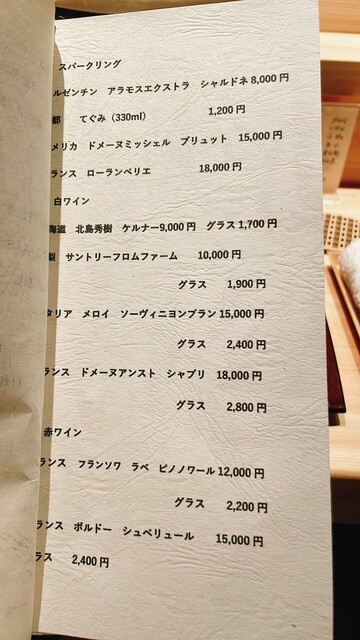 スパークリング
ルゼンチン アラモスエクストラ シャルドネ 8,000 円
都 てぐみ（330ml） 1,200 円
メリカ ドメーヌミッシェル ブリュット 15,000 円
ランス ローランペリエ 18,000 円
白ワイン
海道 北島秀樹 ケルナー9,000 円 グラス 1,700 円
梨 サントリーフロムファーム 10,000 円
グラス 1,900 円
タリア メロイ ソーヴィニヨンブラン 15,000 円
グラス 2,400 円
ランス ドメーヌアンスト シャブリ 18,000 円
グラス 2,800 円
赤ワイン
ランス フランソワ ラベ ピノノワール 12,000 円
グラス 2,200 円
ランス ボルドー シュペリュール 15,000 円
ラス 2,400 円